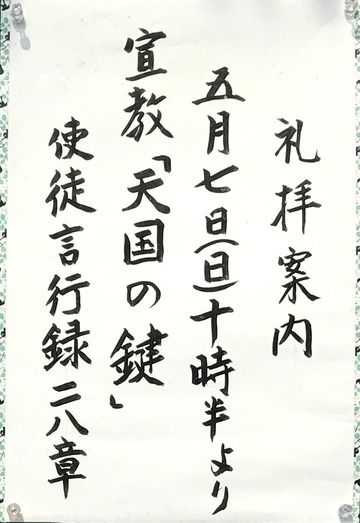 礼拝案内
五月七日(日)十時半より
宣教「天国の鍵」
使徒言行録二八章